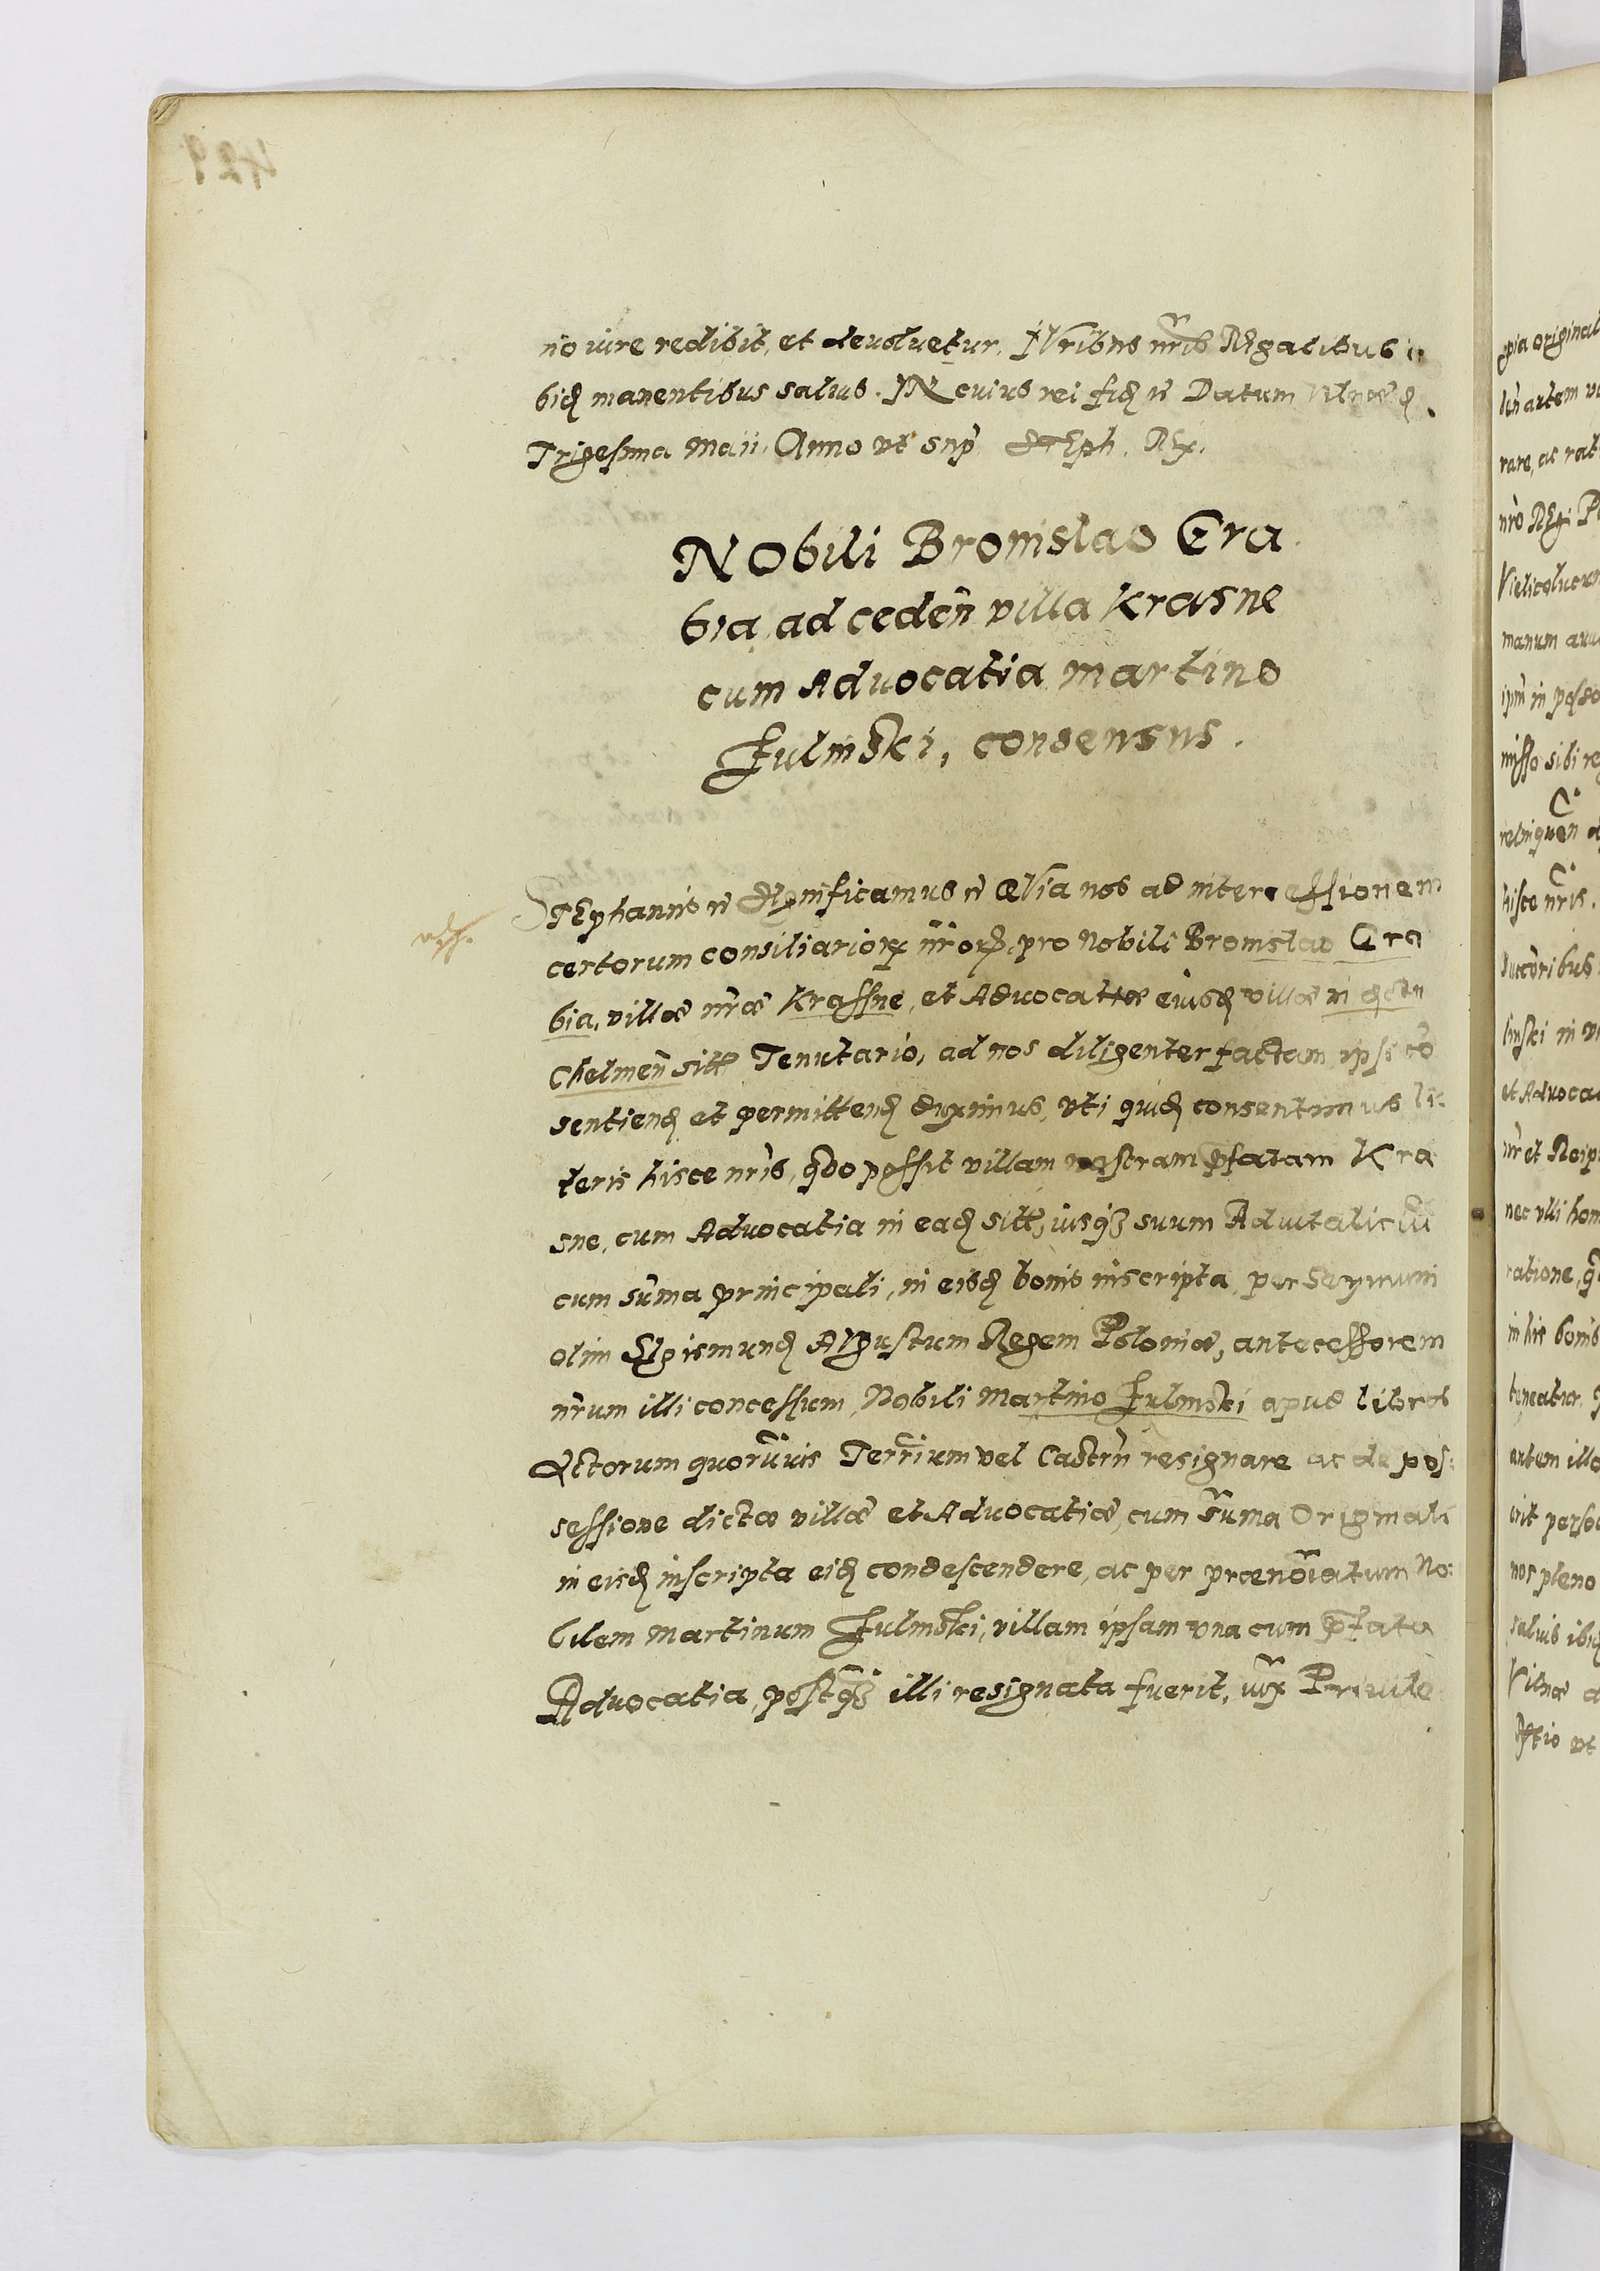 no iure redibit, et deuoluetur. IVribus nr̃is REgalibus i
bidẽ manentibus saluis. IN cuius rei fidẽ &c̃ Datum Vilnæ d
Trigesima Maii, Anno vt supr̃ STEph. REx.
NObili Bronislao Gra
bia, ad cedeñ villa Krasne
cum Aduocatia Martino
Julinski, consensus.
STEphanus &c̃ SIgnificamus &c̃ QVia nos ad intercessionem
certorum consiliariorꝝ nr̃orꝝ, pro Nobili Bronislao Gra
bia, villæ nr̃æ Krassne, et Aduocatiæ eiusdẽ villæ in distr̃
Chelmeñ sitt Tenutario, ad nos diligenter factam, ipsi cõ
sentiendẽ et permittendẽ duximus, vti quidẽ consentimus lit
teris hisce nr̃is, quo possit villam nostram pr̃fatam Kra
sne, cum Aduocatia in eadẽ sitt, iusqꝫ suum Aduitaliciũ
cum sum̃a principali, in eisdẽ bonis inscripta, per Serm̃um
olim SIgismundẽ AVgustum Regem Poloniæ, antecessorem
nr̃um illi concessum, Nobili Martino Julinski apud libros
Actorum quorum̃uis Terr̃ium vel Castr̃n resignare ac de pos:
sessione dictæ villæ et Aduocatiæ, cum sum̃a Originali
in eisdẽ inscripta eidẽ condescendere, ac per prænoĩatum No:
bilem Martinum Julinski, villam ipsam vna cum pr̃fata
Aduocatia, postqꝫ illi resignata fuerit, iux̃ Priuile
429
gia original
rare, ac rat
nr̃o REgi P
Vielicolucum
ipm̃ in posse
misso sibi re
hisce nr̃is.
linski in vi
et Aduocat
nec vlli hom
ratione, q
in his bonis
teneatur
autem illo
nos pleno
saluis ibid
Vilnæ d